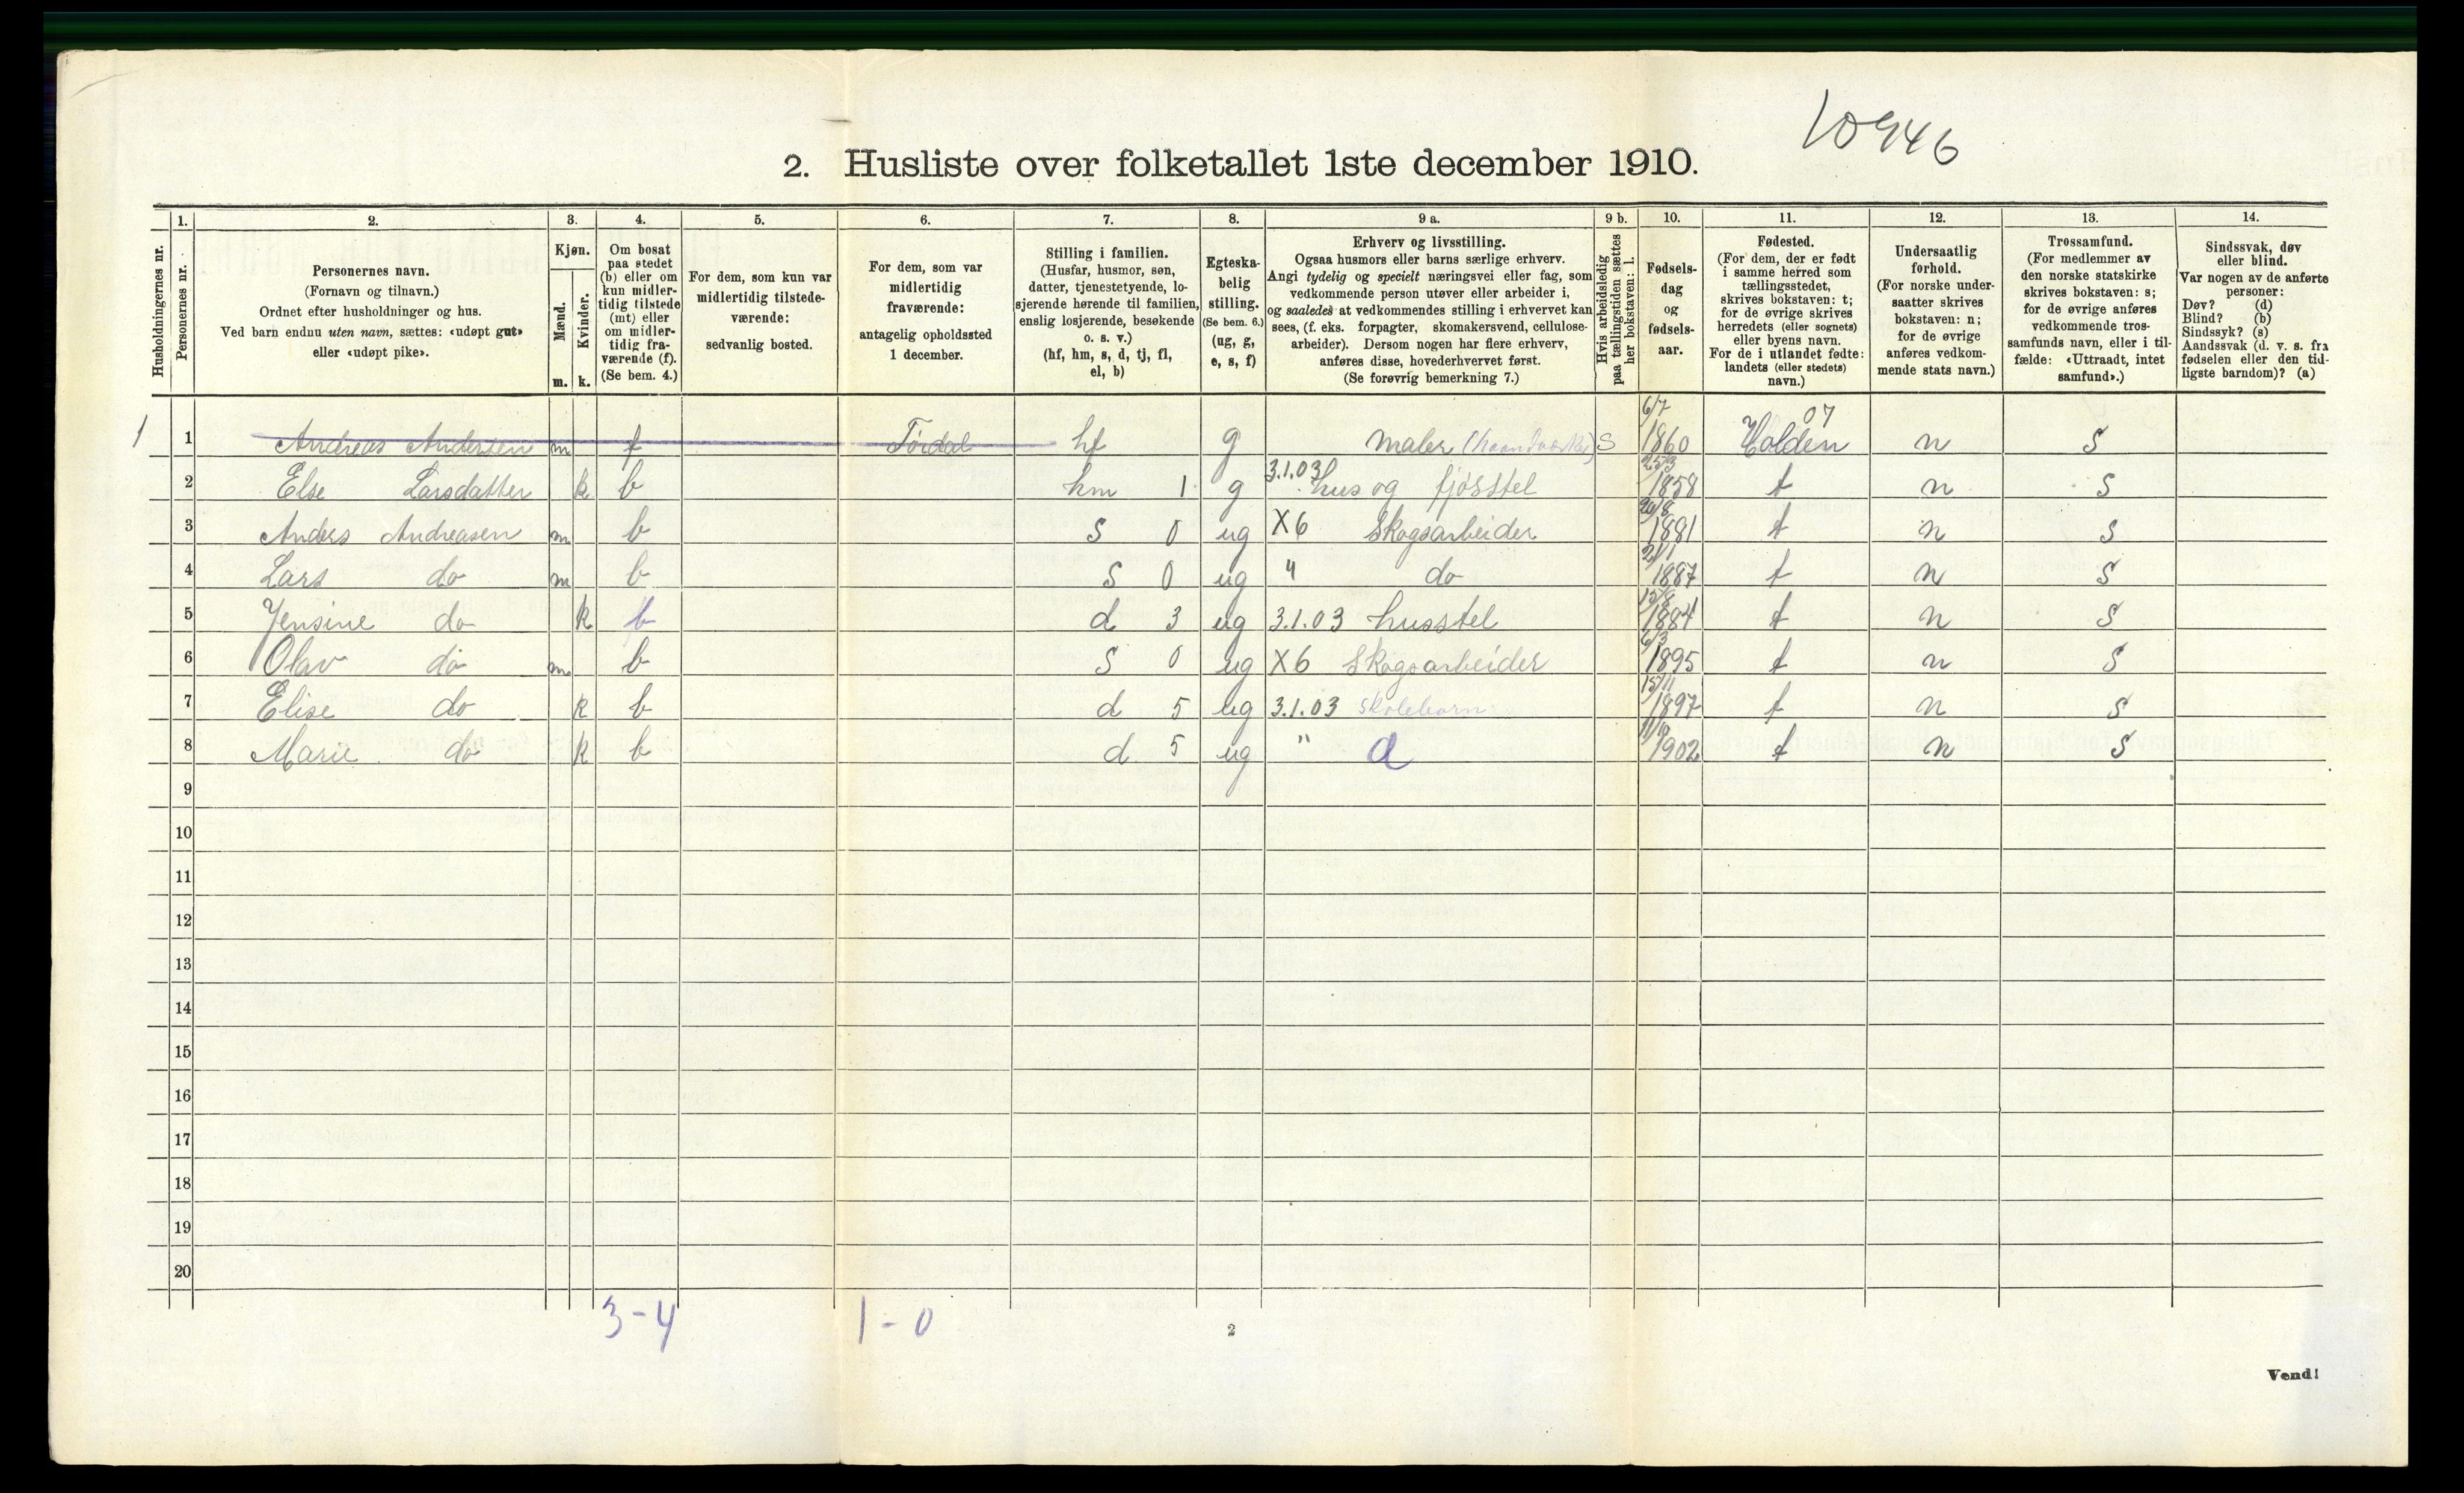 10946
2. Husliste over folketallet 1ste december 1910.
Husholdningernes nr.
1. Personernes nr.
2. Personernes navn. (Fornavn og tilnavn.) Ordnet efter husholdninger og hus. Ved barn endnu uten navn, sættes: «udøpt gut» eller «udøpt pike».
3. Kjøn. Mænd. m. Kvinder. k.
4. Om bosat paa stedet (b) eller om kun midlertidig tilstede (mt) eller om midlertidig fraværende (f). (Se bem. 4.)
5. For dem, som kun var midlertidig tilstedeværende: sedvanlig bosted.
6. For dem, som var midlertidig fraværende: antagelig opholdssted 1 december.
7. Stilling i familien. (Husfar, husmor, søn, datter, tjenestetyende, losjerende hørende til familien, enslig losjerende, besøkende o. s. v.) (hf, hm, s, d, tj, fl, el, b)
8. Egteskabelig stilling. (Se bem. 6.) (ug, g, e, s, f)
9 a. Erhverv og livsstilling. Ogsaa husmors eller barns særlige erhverv. Angi tydelig og specielt næringsvei eller fag, som vedkommende person utøver eller arbeider i, og saaledes at vedkommendes stilling i erhvervet kan sees, (f. eks. forpagter, skomakersvend, cellulosearbeider). Dersom nogen har flere erhverv, anføres disse, hovederhvervet først. (Se forøvrig bemerkning 7.)
9 b. Hvis arbeidsledig paa tællingstiden sættes her bokstaven: l.
10. Fødselsdag og fødselsaar.
11. Fødested. (For dem, der er født i samme herred som tællingsstedet, skrives bokstaven: t; for de øvrige skrives herredets (eller sognets) eller byens navn. For de i utlandet fødte: landets (eller stedets) navn.)
12. Undersaatlig forhold. (For norske undersaatter skrives bokstaven: n; for de øvrige anføres vedkommende stats navn.)
13. Trossamfund. (For medlemmer av den norske statskirke skrives bokstaven: s; for de øvrige anføres vedkommende trossamfunds navn, eller i tilfælde: «Uttraadt, intet samfund».)
14. Sindssvak, døv eller blind. Var nogen av de anførte personer: Døv? (d) Blind? (b) Sindssyk? (s) Aandssvak (d. v. s. fra fødselen eller den tidligste barndom)? (a)
1 1 Andreas Andersen m f Tördal hf g maler (haandverker) S 6/7 1860 07 Holden n S
2 Else Larsdatter k b hm 1 g 3.1.03 hus og fjösstel 25/3 1858 t n S
3 Anders Andreasen m b S 0 ug X6 Skogsarbeider 1881 t n S
4 Lars do m b S 0 ug " do 2/1 1887 t n S
5 Jensine do k b d 3 ug 3.1.03 husstel 15/8 1884 t n S
6 Olav do m b S 0 ug X6 Skogsarbeider 6/3 1895 t n S
7 Elise do k b d 5 ug 3.1.03 skolebarn 15/11 1897 t n S
8 Marie do k b d 5 ug " d 11/10 1902 t n S
9
10
11
12
13
14
15
16
17
18
19
20
3-4 1-0
2
Vend!